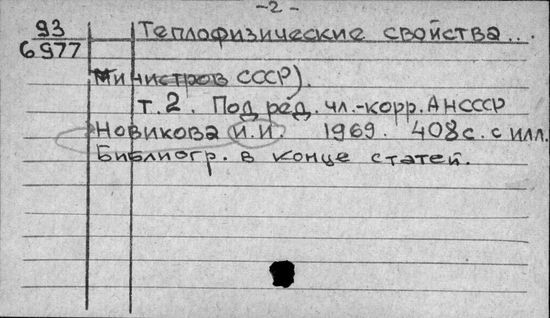 -2-
93
6977
Теплофизические свойства...
Министров СССР).
т.2. Под ред. чл.-корр. АН СССР
Новикова И.И. 1969. 408с. с илл.
Библиогр. в конце статей.